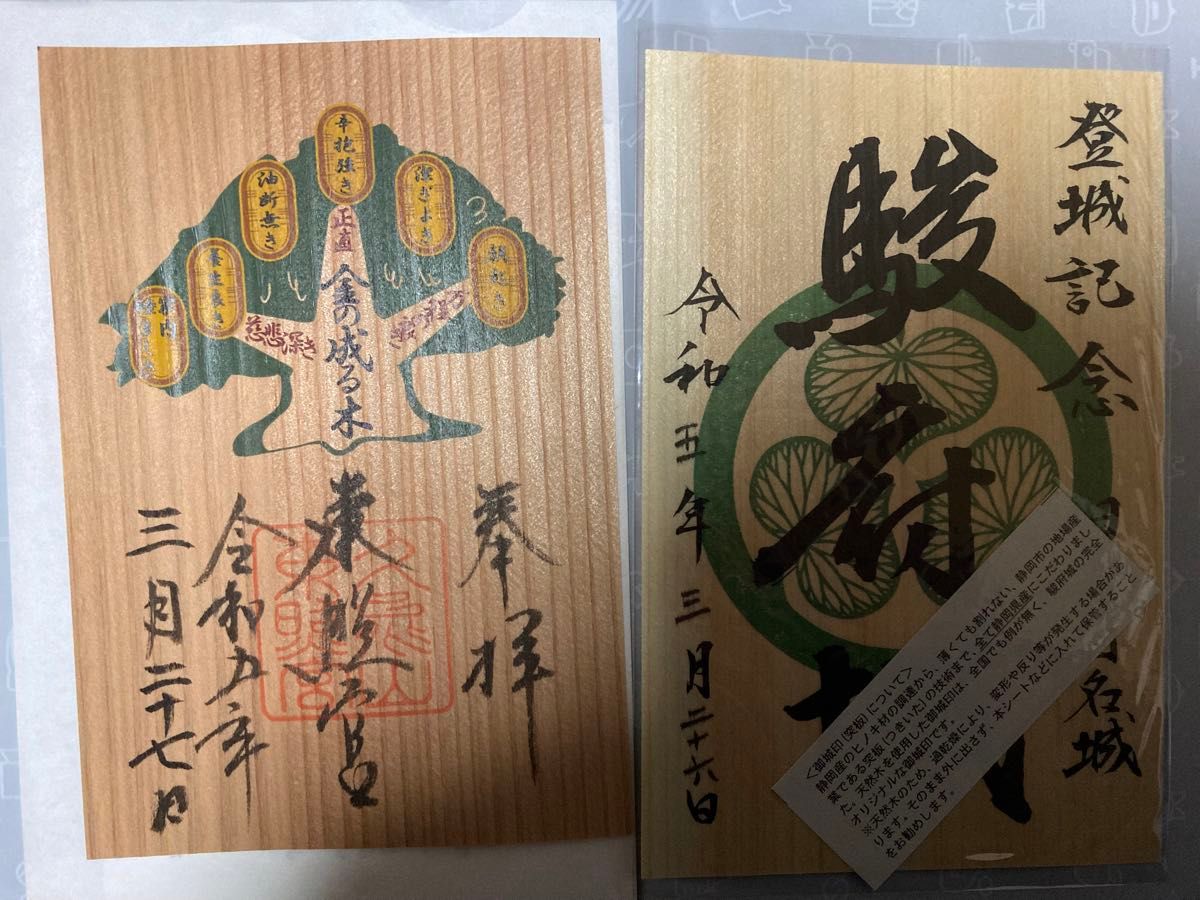 潔ぎよき
辛抱強き
油断無き
養生良き
朝起き
正直
慈悲深き
金の成る木
奉拝
東照宮
令和五年
三月二十七日
登城記念
名城
駿府
令和五年三月二十六日
<御城印(突板)について>
静岡産のヒノキ材の調達から、薄くても割れない、静岡市の地場産
業である突板(つきいた)の技術まで、全て静岡県産にこだわりまし
た。天然木を使用した御城印は、全国でも例が無く、駿府城の完全
オリジナルな御城印です。
※天然木のため、過乾燥により、変形や反り等が発生する場合があ
ります。そのまま外に出さず、本シートなどに入れて保管すること
をお勧めします。